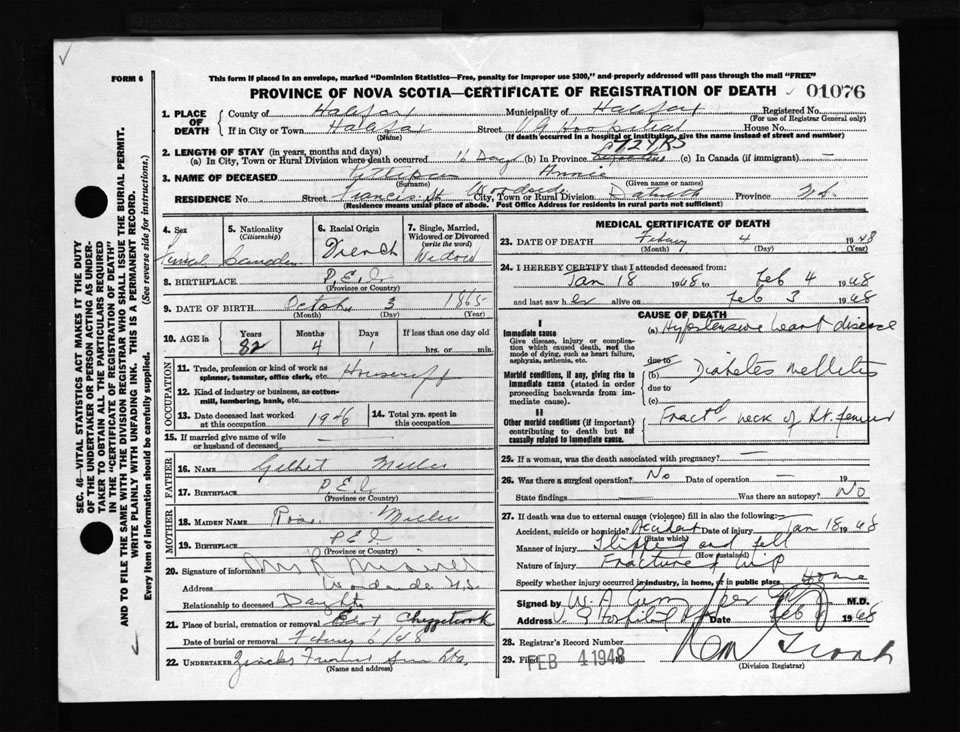 FORM 6
This form if placed in an envelope, marked "Dominion Statistics—Free, penalty for improper use $300," and properly addressed will pass through the mail "FREE"
PROVINCE OF NOVA SCOTIA—CERTIFICATE OF REGISTRATION OF DEATH 01076
SEC. 46—VITAL STATISTICS ACT MAKES IT THE DUTY OF THE UNDERTAKER OR PERSON ACTING AS UNDERTAKER TO OBTAIN ALL THE PARTICULARS REQUIRED IN THE "CERTIFICATE OF REGISTRATION OF DEATH"
AND TO FILE THE SAME WITH THE DIVISION REGISTRAR WHO SHALL ISSUE THE BURIAL PERMIT.
WRITE PLAINLY WITH UNFADING INK. THIS IS A PERMANENT RECORD.
Every item of information should be carefully supplied. (See reverse side for instructions.)
1. PLACE OF DEATH
County of Halifax Municipality of Halifax Registered No.
(For use of Registrar General only)
If in City or Town Halifax Street V G Hospital House No.
(Name) (If death occurred in a hospital or institution, give the name instead of street and number)
2. LENGTH OF STAY (in years, months and days)
(a) In City, Town or Rural Division where death occurred 16 Days (b) In Province 72 YRS (c) In Canada (if immigrant) —
3. NAME OF DECEASED Annie
(Surname) (Given name or names)
RESIDENCE No. Street Francis St Woodside City, Town or Rural Division Province N.S.
(Residence means usual place of abode. Post Office Address for residents in rural parts not sufficient)
4. Sex
5. Nationality (Citizenship) Canadian
6. Racial Origin French
7. Single, Married, Widowed or Divorced (write the word) Widow
8. BIRTHPLACE P.E.I.
(Province or Country)
9. DATE OF BIRTH October 3 1865
(Month) (Day) (Year)
10. AGE in Years 82 Months 4 Days 1 If less than one day old hrs. or min.
OCCUPATION
11. Trade, profession or kind of work as spinner, teamster, office clerk, etc. Housewife
12. Kind of industry or business, as cotton-mill, lumbering, bank, etc.
13. Date deceased last worked at this occupation 1946
14. Total yrs. spent in this occupation
15. If married give name of wife or husband of deceased —
FATHER
16. NAME Gilbert
17. BIRTHPLACE P.E.I.
(Province or Country)
MOTHER
18. MAIDEN NAME
19. BIRTHPLACE P.E.I
(Province or Country)
20. Signature of informant Mrs R
Address Woodside N.S.
Relationship to deceased Daughter
21. Place of burial, cremation or removal East Chezzetcook
Date of burial or removal 6/48
22. UNDERTAKER
(Name and address)
MEDICAL CERTIFICATE OF DEATH
23. DATE OF DEATH 4 1948
(Month) (Day) (Year)
24. I HEREBY CERTIFY that I attended deceased from:
Jan 18 1948 to Feb 4 1948
and last saw her alive on Feb 3 1948
CAUSE OF DEATH
I
Immediate cause
Give disease, injury or complication which caused death, not the mode of dying, such as heart failure, asphyxia, asthenia, etc.
(a) Hypertensive heart disease
due to
Morbid conditions, if any, giving rise to immediate cause (stated in order proceeding backwards from immediate cause).
(b) Diabetes Mellitus
due to
(c)
II
Other morbid conditions (if important) contributing to death but not causally related to immediate cause.
Fract'd neck of Rt. femur
25. If a woman, was the death associated with pregnancy? —
26. Was there a surgical operation? No Date of operation — 19
State findings Was there an autopsy? No
27. If death was due to external causes (violence) fill in also the following:
Accident, suicide or homicide? Accident Date of injury Jan 18 1948
(State which)
Manner of injury Slipped and fell
(How sustained)
Nature of injury Fracture of hip
Specify whether injury occurred in industry, in home, or in public place Home
Signed by M.D.
Address V. G Hospital Date Feb 1948
28. Registrar's Record Number
29. Filed FEB 4 1948
(Division Registrar)